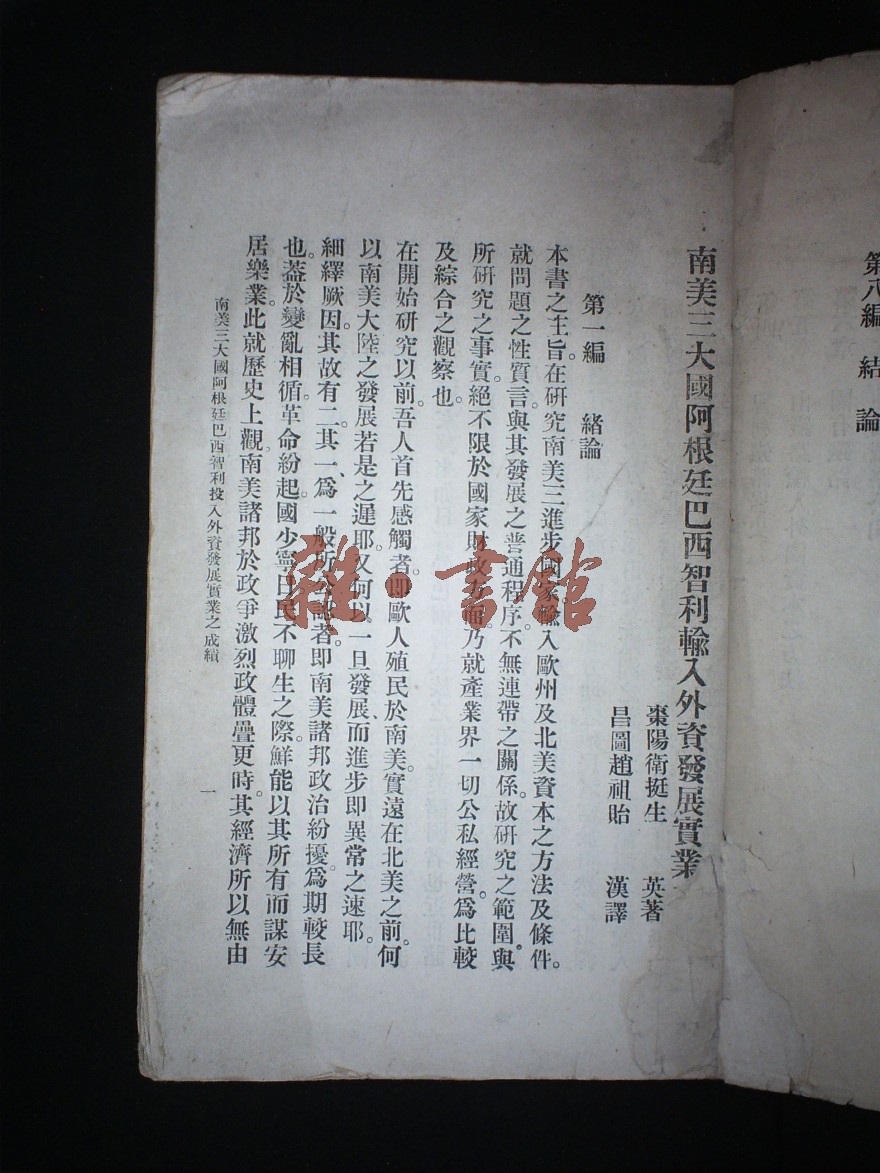 第八編　結論
南美三大國阿根廷巴西智利輸入外資發展實業
棗陽衛挺生　英著
昌圖趙祖貽　漢譯
第一編　緒論
本書之主旨。在研究南美三進步國家輸入歐州及北美資本之方法及條件。
就問題之性質言。與其發展之普通程序。不無連帶之關係。故研究之範圍。與
所研究之事實。絕不限於國家財政方面。乃就產業界一切公私經營。爲比較
及綜合之觀察也。
在開始研究以前。吾人首先感觸者。即歐人殖民於南美。實遠在北美之前。何
以南美大陸之發展若是之遲耶。又何以一旦發展、而進步即異常之速耶。
細繹厥因。其故有二。其一、爲一般所公認者。即南美諸邦政治紛擾。爲期較長
也。蓋於變亂相循。革命紛起。國少寧日。民不聊生之際。鮮能以其所有而謀安
居樂業。此就歷史上觀。南美諸邦於政爭激烈政體疊更時。其經濟所以無由
南美三大國阿根廷巴西智利投入外資發展實業之成績
一
雜·書館